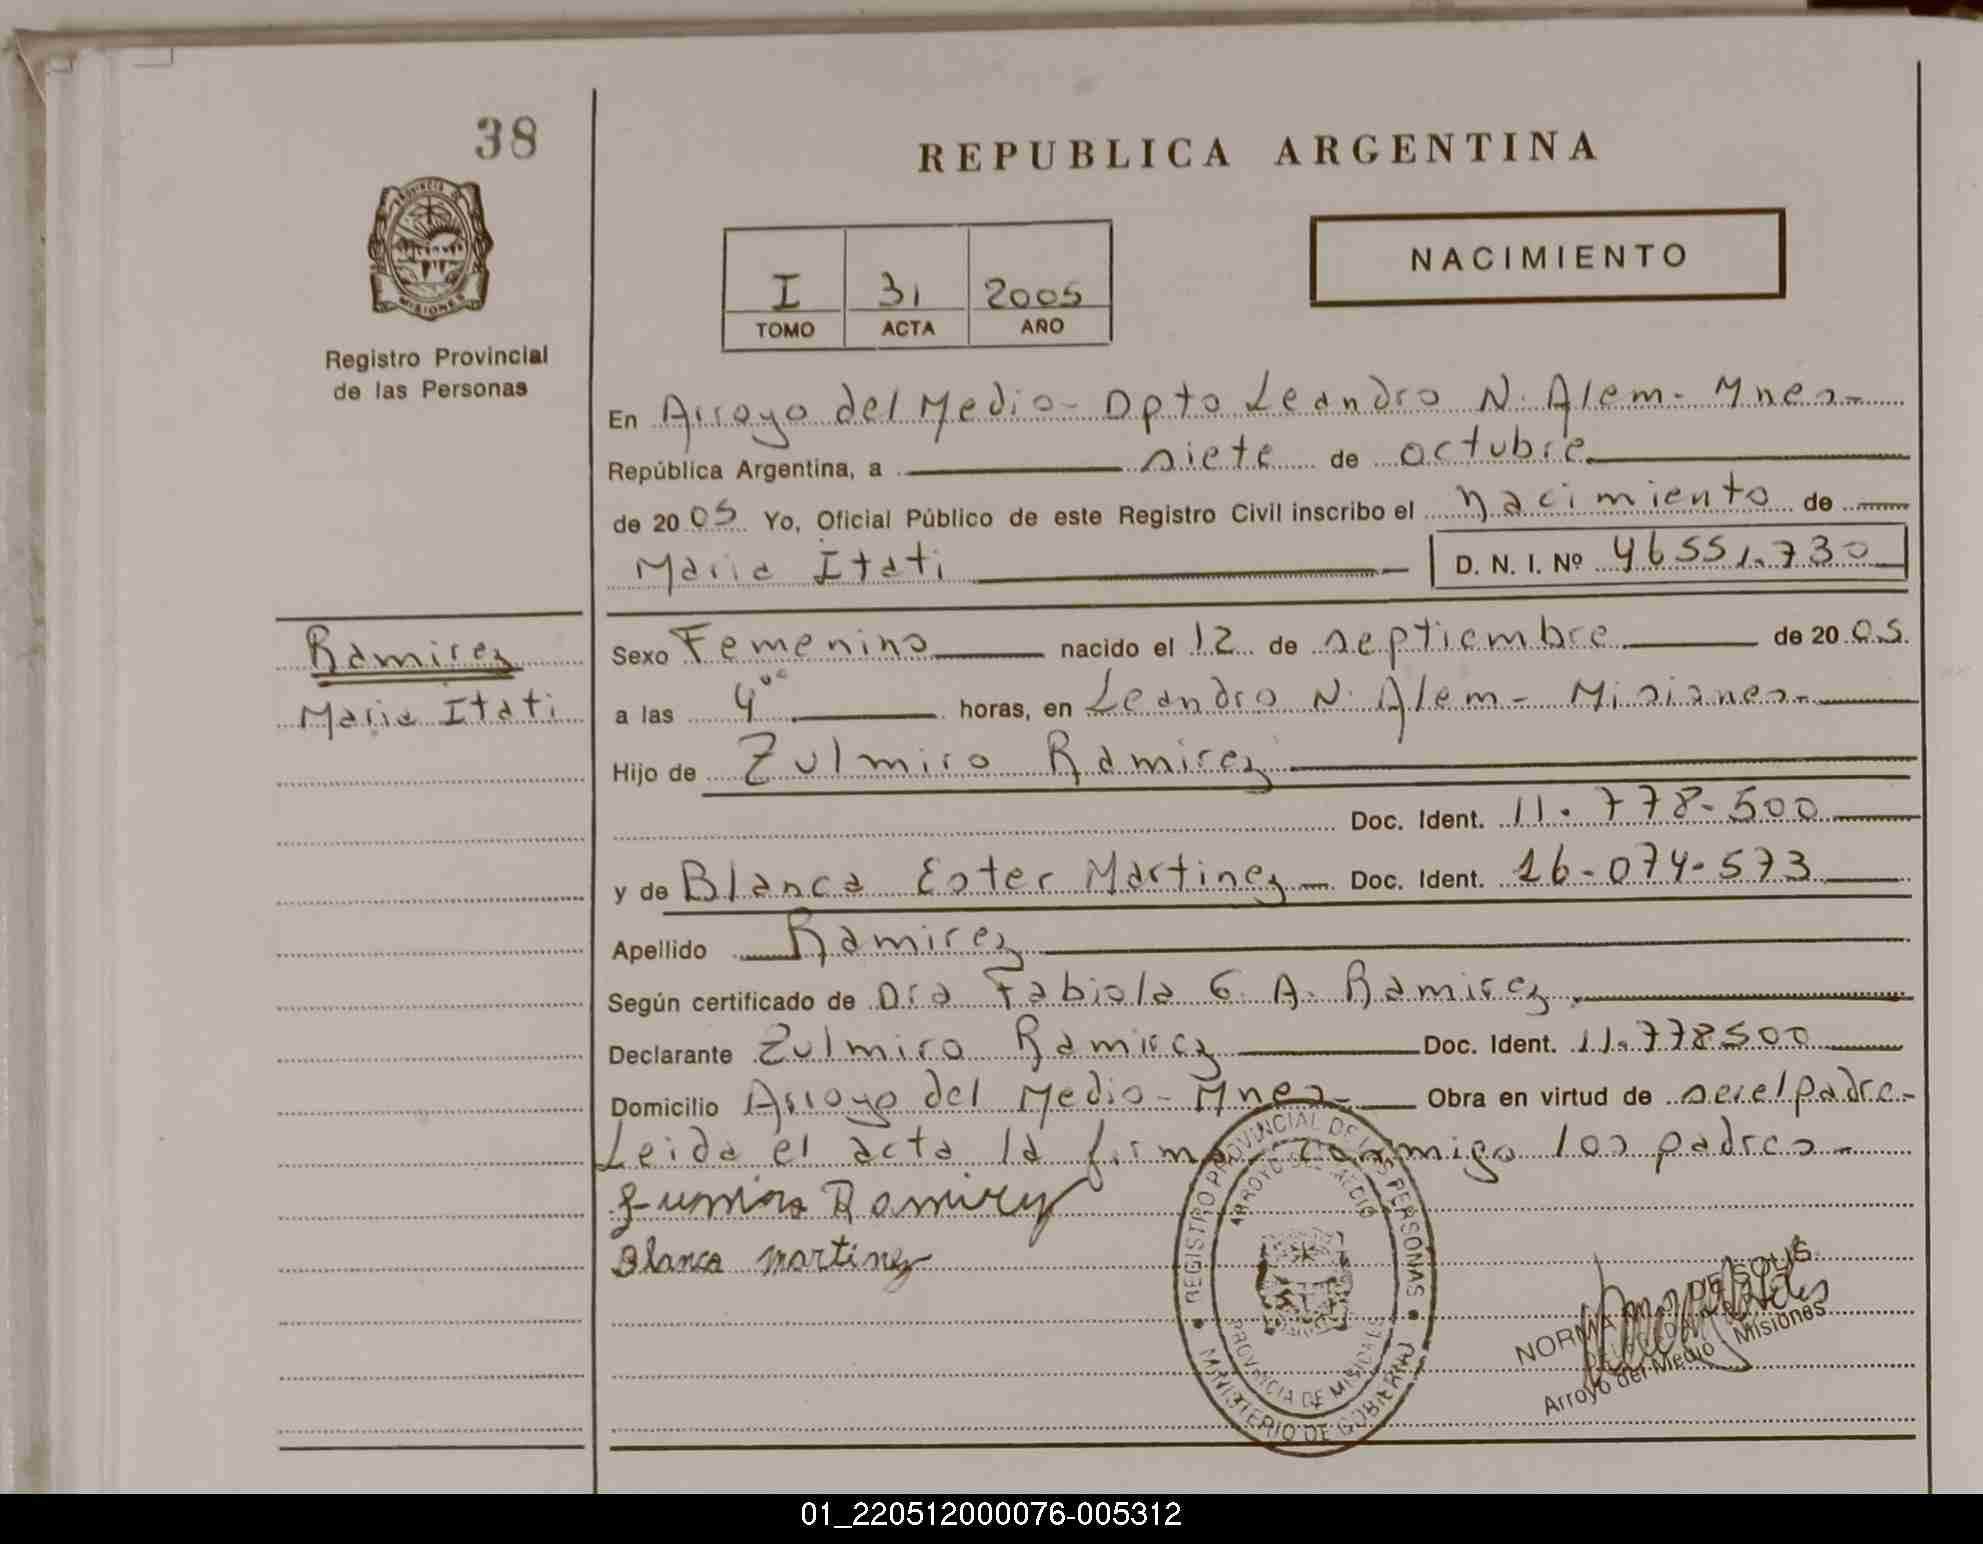 38
REPUBLICA ARGENTINA
PROVINCIA DE
MISIONES
Registro Provincial
de las Personas
NACIMIENTO
I 31 2005
TOMO ACTA AÑO
En Arroyo del Medio - Dpto Leandro N. Alem - Mnes -
República Argentina, a siete de octubre
de 20 05 Yo, Oficial Público de este Registro Civil inscribo el nacimiento de
Maria Itati D. N. I. Nº 46551.730
Ramirez
Maria Itati
Sexo Femenino nacido el 12 de septiembre de 20 05.
a las 4ºº horas, en Leandro N. Alem - Misiones -
Hijo de Zulmiro Ramirez
Doc. Ident. 11.778-500
y de Blanca Ester Martinez - Doc. Ident. 16-074-573
Apellido Ramirez
Según certificado de Dra Fabiola G. A. Ramirez
Declarante Zulmiro Ramirez Doc. Ident. 11.778500
Domicilio Arroyo del Medio - Mnes - Obra en virtud de ser el padre -
Leida el acta la firman conmigo los padres -
Ramirez
Blanca Martinez
REGISTRO PROVINCIAL DE LAS PERSONAS
ARROYO DEL MEDIO
PROVINCIA DE MISIONES
MINISTERIO DE GOBIERNO
NORMA DE SOLIS
Arroyo del Medio - Misiones
01_220512000076-005312